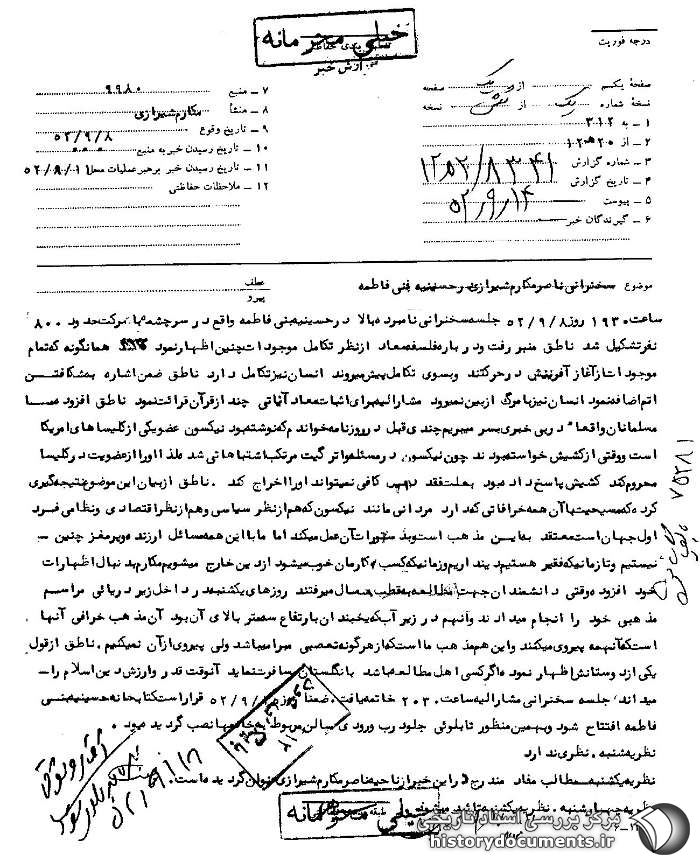 خیلی محرمانه
گزارش خبر
درجه فوریت
صفحهٔ یکم از یک صفحه
نسخهٔ شماره یک از شش نسخه
۱ – به ۳۱۲
۲ – از ۲۰ ه‍ ۱۲
۳ – شماره گزارش ۱۲۵۲/۸۳۴۱
۴ – تاریخ گزارش ۵۲/۹/۱۴
۵ – پیوست
۶ – گیرندگان خبر
۷ – منبع ۹۹۸۰
۸ – منشأ مکارم شیرازی
۹ – تاریخ وقوع ۵۲/۹/۸
۱۰ – تاریخ رسیدن خبر به منبع
۱۱ – تاریخ رسیدن خبر برهبر عملیات محل ۵۲/۹/۱۱
۱۲ – ملاحظات حفاظتی
موضوع سخنرانی ناصر مکارم شیرازی در حسینیه بنی فاطمه
عطف
پیرو
ساعت ۱۹۳۰ روز ۵۲/۹/۸ جلسه سخنرانی نامبرده بالا در حسینیه بنی فاطمه واقع در سرچشمه با شرکت حدود ۸۰۰
نفر تشکیل شد ناطق منبر رفت و در باره فلسفه معاد از نظر تکامل موجودات چنین اظهار نمود همانگونه که تمام
موجودات از آغاز آفرینش در حرکتند و بسوی تکامل پیش میروند انسان نیز تکامل دارد ناطق ضمن اشاره به شکافتن
اتم اضافه نمود انسان نیز با مرگ از بین نمیرود مشارالیه برای اثبات معاد آیاتی چند از قرآن قرائت نمود ناطق افزود ما
مسلمانان واقعا" در بی خبری بسر میبریم چندی قبل در روزنامه خواندم که نوشته بود نیکسون عضو یکی از کلیساهای امریکا
است و وقتی از کشیش خواسته بودند چون نیکسون در مسئله واتر گیت مرتکب اشتباهاتی شد لذا او را از عضویت در کلیسا
محروم کند کشیش پاسخ داده بود بعلت فقد کافی نمیتواند او را اخراج کند . ناطق از بیان این موضوع نتیجه گیری
کرد که مسیحیت با آن همه خرافاتی که دارد مردانی مانند نیکسون که هم از نظر سیاسی وهم از نظر اقتصادی و نظامی فرد
اول جهان است معتقد به این مذهب است و بدستورات آن عمل میکند اما ما با این همه مسائل ارزنده و پر مغز چنین –
نیستیم و تا زمانیکه فقیر هستیم دینداریم و زمانیکه کسب و کارمان خوب میشود از دین خارج میشویم مکارم بدنبال اظهارات
خود افزود وقتی دانشمندان جهت مطالعه به قطب شمال میرفتند روزهای یکشنبه در داخل زیر دریائی مراسم
مذهبی خود را انجام میدادند و آنهم در زیر آب که یخبندان بارتفاع سه متر بالای آن بود آن مذهب خرافی آنها
است که آنهمه پیروی میکنند و این هم مذهب ما است که از هر گونه تعصبی مبرا میباشد ولی پیروی از آن نمیکنیم . ناطق از قول
یکی از دوستانش اظهار نمود که اگر کسی اهل مطالعه باشد بانگلستان مسافرت نماید آنوقت قدر و ارزش دین اسلام را –
میداند جلسه سخنرانی مشارالیه ساعت ۲۰۳۰ خاتمه یافت . ضمنا روز ۵۲/۹/ قرار است کتابخانه حسینیه بنی
فاطمه افتتاح شود و بهمین منظور تابلوئی جلو درب ورودی سالن مربوط به خانمها نصب گردیده بود .
نظریه شنبه . نظری ندارد
نظریه یکشنبه . مطالب مفاد مندرج در این خبر از ناحیه ناصر مکارم شیرازی عنوان گردیده است .
نظریه چهارشنبه . نظریه یکشنبه تائید میشود
خیلی محرمانه
مرکز بررسی اسناد تاریخی
historydocuments.ir